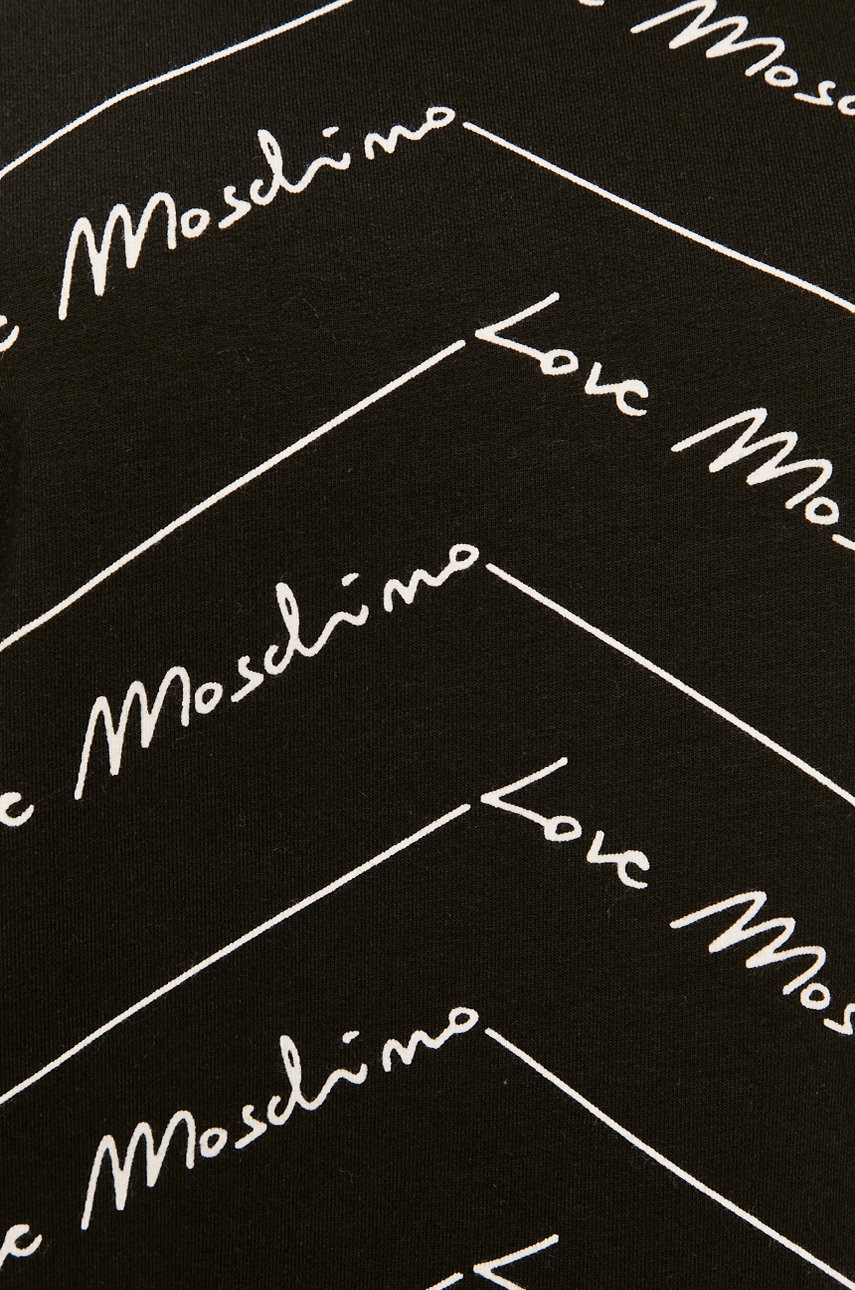 Mosc
Moschino
Love Mos
Moschino
Love Mos
Moschino